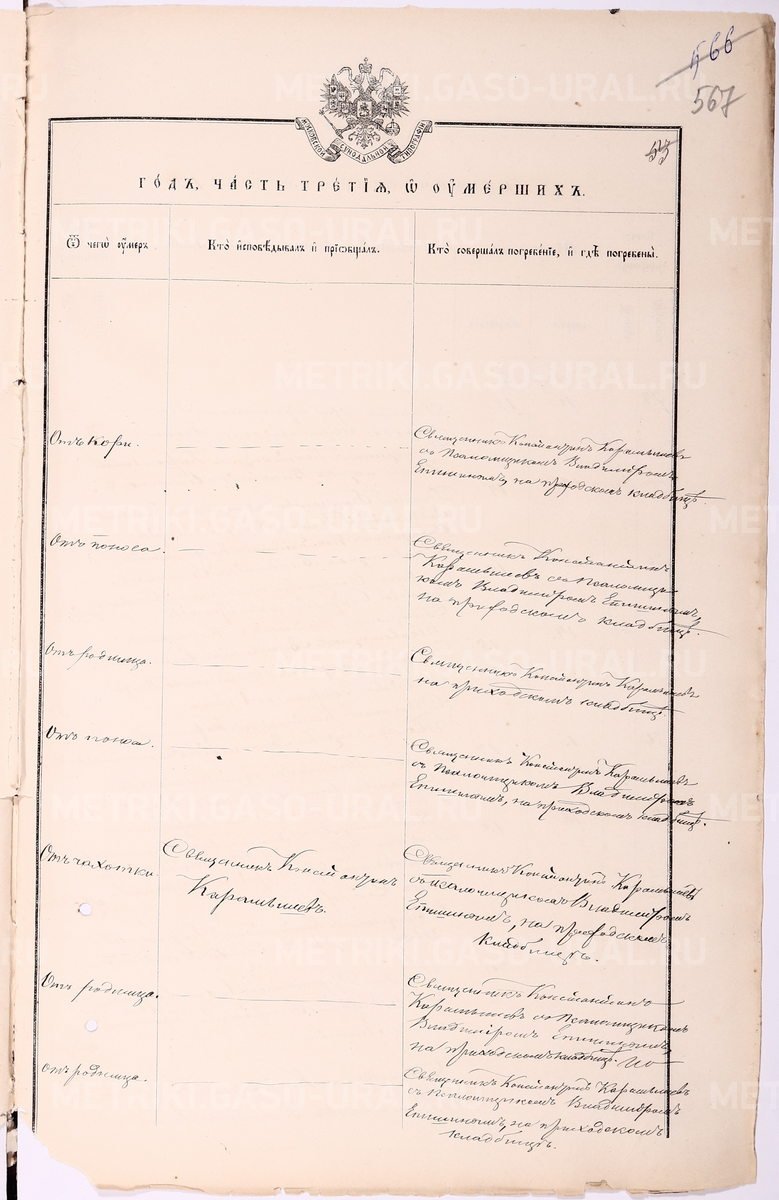 566
567
МОСКОВСКОЙ СѴНОДАЛЬНОЙ ТИПОГРАФІИ
53
ГО́ДЪ, ЧА́СТЬ ТРЕ́ТІѦ, Ѽ ОУ҆МЕ́РШИХЪ.
Ѿ чегѡ̀ оу҆́меръ.
Кто̀ и҆сповѣ́дывалъ и҆ прїѡбща́лъ.
Кто̀ соверша́лъ погребе́нїе, и҆ гдѣ̀ погребены̀.
Отъ кори.
Священникъ Константинъ Карамышевъ
съ Псаломщикомъ Владиміромъ
Епишинымъ, на приходскомъ кладбищѣ.
Отъ поноса.
Священникъ Константинъ
Карамышевъ съ Псаломщи-
комъ Владиміромъ Епишинымъ,
на приходскомъ кладбищѣ.
Отъ родимца.
Священникъ Константинъ Карамышевъ
на приходскомъ кладбищѣ.
Отъ поноса.
Священникъ Константинъ Карамышевъ
съ Псаломщикомъ Владиміромъ
Епишинымъ, на приходскомъ кладбищѣ.
Отъ чахотки.
Священникъ Константинъ
Карамышевъ.
Священникъ Константинъ Карамышевъ
съ Псаломщикомъ Владиміромъ
Епишинымъ, на приходскомъ
кладбищѣ.
Отъ родимца.
Священникъ Константинъ
Карамышевъ съ Псаломщикомъ
Владиміромъ Епишинымъ,
на приходскомъ кладбищѣ.
Отъ родимца.
Священникъ Константинъ Карамышевъ
съ Псаломщикомъ Владиміромъ
Епишинымъ, на приходскомъ
кладбищѣ.
METRIKI.GASO-URAL.RU